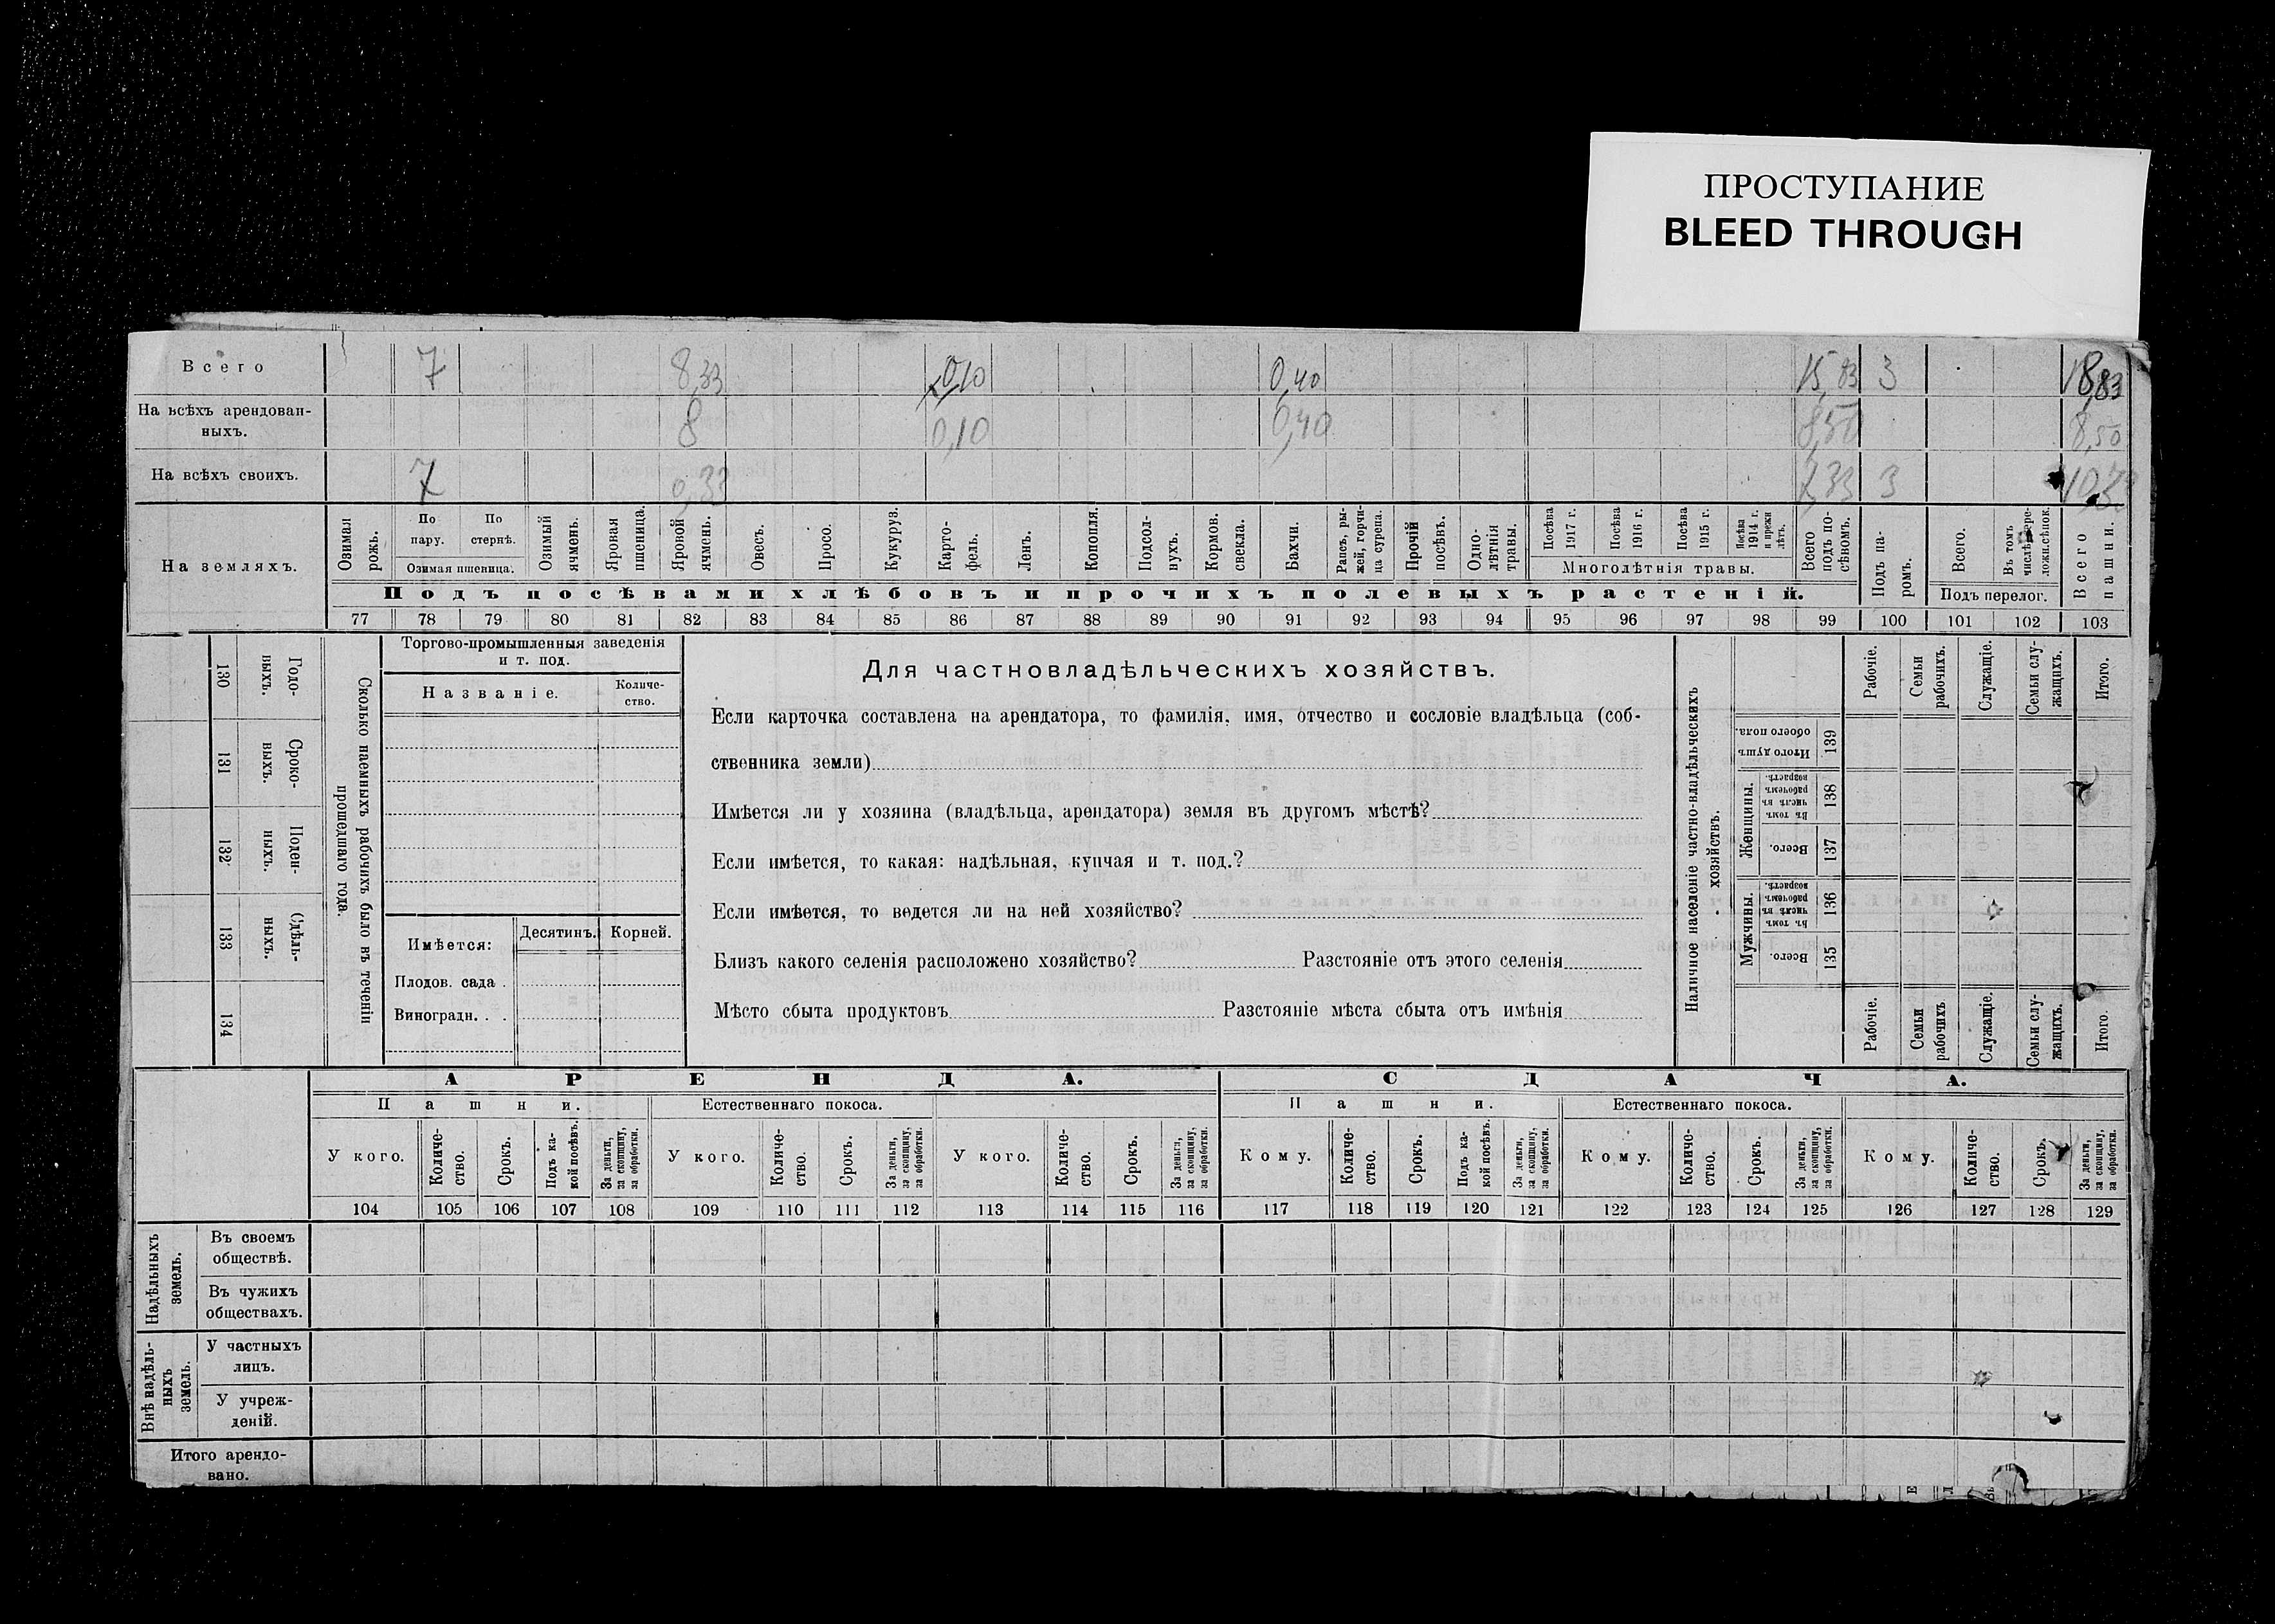 ПРОСТУПАНИЕ
BLEED THROUGH
Всего 7 8,33 0,10 0,40 15,83 3 18,83
На всѣхъ арендован-
ныхъ. 8 0,10 0,40 8,50 8,50
На всѣхъ своихъ. 7 0,33 7,33 3
На земляхъ.
Озимая рожь.
По пару.
По стернѣ.
Озимая пшеница.
Озимый ячмень.
Яровая пшеница.
Яровой ячмень.
Овесъ.
Просо.
Кукуруз.
Карто-
фель.
Ленъ.
Конопля.
Подсол-
нухъ.
Кормов. свекла.
Бахчи.
Рапсъ, ры-
жей, горчи-
ца сурепа.
Прочій посѣвъ.
Одно-
лѣтнія травы.
Посѣва 1917 г.
Посѣва 1916 г.
Посѣва 1915 г.
Посѣва 1914 г. и прежн лѣтъ.
Многолѣтнія травы.
Всего подъ по-
сѣвомъ.
Подъ па-
ромъ.
Всего.
Въ томъ
Подъ перелог.
Всего пашни.
Подъ посѣвами хлѣбовъ и прочихъ полевыхъ растеній.
77 78 79 80 81 82 83 84 85 86 87 88 89 90 91 92 93 94 95 96 97 98 99 100 101 102 103
130 Годо-
выхъ.
131 Сроко-
выхъ.
132 Поден-
ныхъ.
133 Сдѣль-
ныхъ.
134
Сколько наемныхъ рабочихъ было въ теченіи
прошедшаго года.
Торгово-промышленныя заведенія
и т. под.
Названіе.
Количе-
ство.
Имѣется:
Десятинъ.
Корней.
Плодов. сада .
Виноградн. . .
Для частновладѣльческихъ хозяйствъ.
Если карточка составлена на арендатора, то фамилія, имя, отчество и сословіе владѣльца (соб-
ственника земли)
Имѣется ли у хозяина (владѣльца, арендатора) земля въ другомъ мѣстѣ?
Если имѣется, то какая: надѣльная, купчая и т. под.?
Если имѣется, то ведется ли на ней хозяйство?
Близъ какого селенія расположено хозяйство? Разстояніе отъ этого селенія
Мѣсто сбыта продуктовъ Разстояніе мѣста сбыта отъ имѣнія
Наличное населеніе частно-владѣльческихъ
хозяйствъ.
Рабочіе.
Семьи рабочихъ.
Служащіе.
Семьи слу-
жащихъ.
Итого.
Итого душъ обоего пола. 139
Женщины.
Въ томъ числѣ въ рабочемъ возрастѣ. 138
Всего. 137
Мужчины.
Въ томъ числѣ въ рабочемъ возрастѣ. 136
Всего. 135
Рабочіе.
Семьи рабочихъ
Служащіе.
Семьи слу-
жащихъ.
Итого.
АРЕНДА. СДАЧА.
Пашни. Естественнаго покоса. Пашни. Естественнаго покоса.
У кого.
Количе-
ство.
Срокъ.
Подъ ка-
кой посѣвъ.
За деньги, за скопщину, за обработки.
У кого.
Количе-
ство.
Срокъ.
За деньги, за скопщину, за обработки.
У кого.
Количе-
ство.
Срокъ.
За деньги, за скопщину, за обработки.
Кому.
Количе-
ство.
Срокъ.
Подъ ка-
кой посѣвъ.
За деньги, за скопщину, за обработки.
Кому.
Количе-
ство.
Срокъ.
За деньги, за скопщину, за обработки.
Кому.
Количе-
ство.
Срокъ.
За деньги, за скопщину, за обработки.
104 105 106 107 108 109 110 111 112 113 114 115 116 117 118 119 120 121 122 123 124 125 126 127 128 129
Надѣльныхъ земель.
Въ своемъ
обществѣ.
Въ чужихъ
обществахъ.
Внѣ надѣль-
ныхъ земель.
У частныхъ
лицъ.
У учреж-
деній.
Итого арендо-
вано.